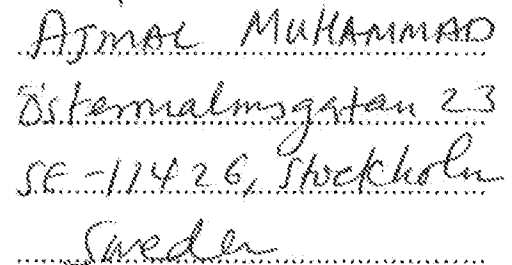 AJMAL MUHAMMAD
Östermalmsgatan 23
SE-11426, Stockholm
Sweden